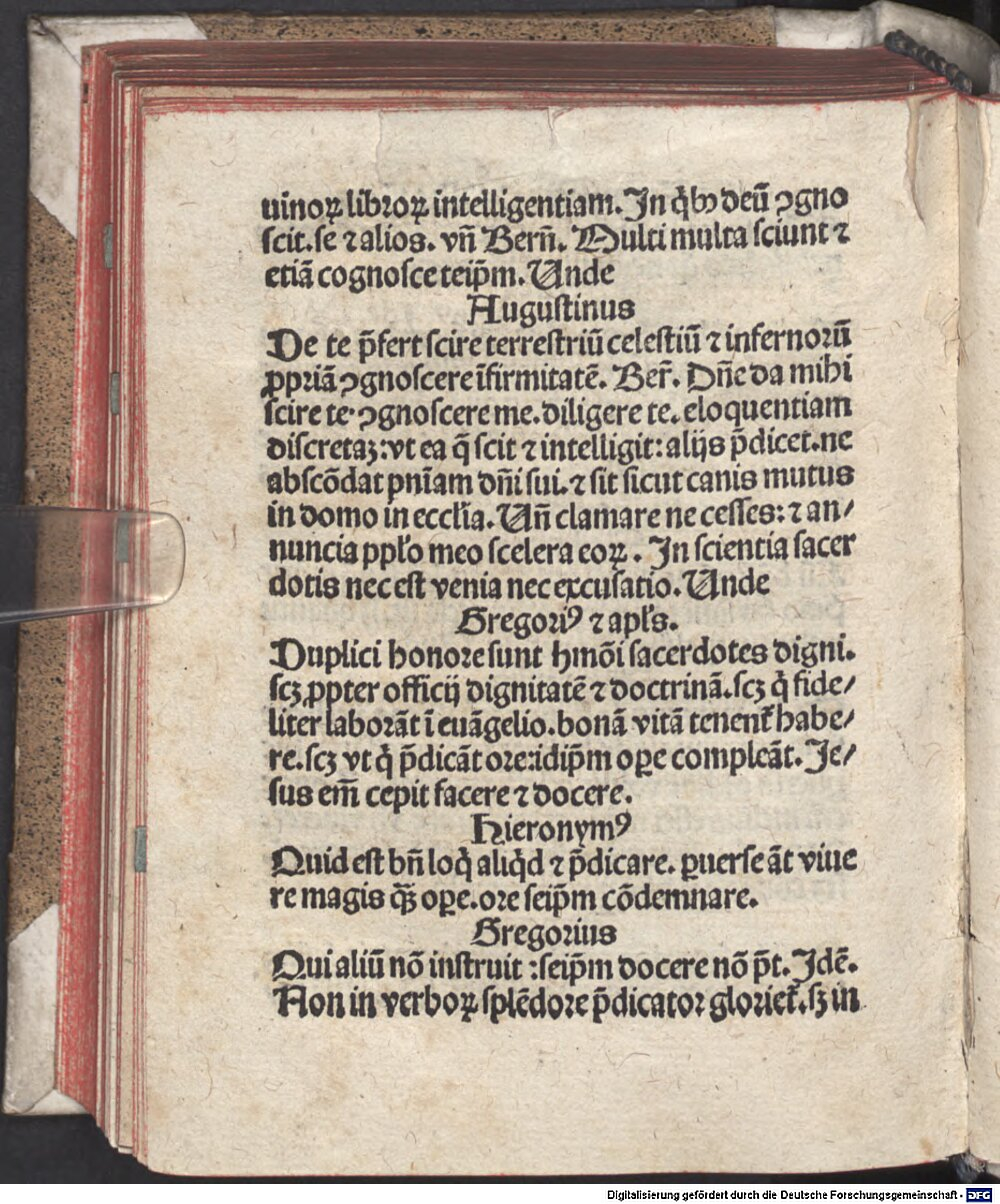 uinoꝝ libꝛoꝝ intelligentiam. In q̈bꝰ deū ꝯgno
ſcit. ſe ⁊ alios. vñ Berñ. Multi multa ſciunt ⁊
etiā cognoſce teip̄m. Unde
Auguſtinus
De te p̄fert ſcire terreſtriū celeſtiū ⁊ infernoꝛū
ꝓpriā ꝯgnoſcere īfirmitatē. Ber̄. Dn̄e da mihi
ſcire te· ꝯgnoſcere me. diligere te. eloquentiam
diſcretaꝫ: vt ea q̄ ſcit ⁊ intelligit: alijs p̄dicet. ne
abſcōdat pn̄iam dn̄i ſui. ⁊ ſit ſicut canis mutus
in domo in eccl̄ia. Uñ clamare ne ceſſes: ⁊ an/
nuncia ppl̄o meo ſcelera eoꝝ. In ſcientia ſacer
dotis nec eſt venia nec excuſatio. Unde
Gregoꝛiꝰ ⁊ apl̄s.
Duplici honoꝛe ſunt hmōi ſacerdotes digni.
ſcꝫ ꝓpter officij dignitatē ⁊ doctrinā. ſcꝫ q̇ fide/
liter laboꝛāt ī euāgelio. bonā vitā tenent̄ habe/
re. ſcꝫ vt q̇ p̄dicāt oꝛe: idip̄m oꝑe compleāt. Je/
ſus em̄ cepit facere ⁊ docere.
Hieronymꝰ
Quid eſt bn̄ loq̇ aliq̇d ⁊ p̄dicare. ꝑuerſe āt viue
re magis qꝫ̄ oꝑe. oꝛe ſeip̄m cōdemnare.
Gregoꝛius
Qui aliū nō inſtruit: ſeip̄m docere nō p̄t. Idē.
Non in verboꝝ ſplēdoꝛe p̄dicatoꝛ gloꝛiet̄. ſꝫ in
Digitalisierung gefördert durch die Deutsche Forschungsgemeinschaft - DFG